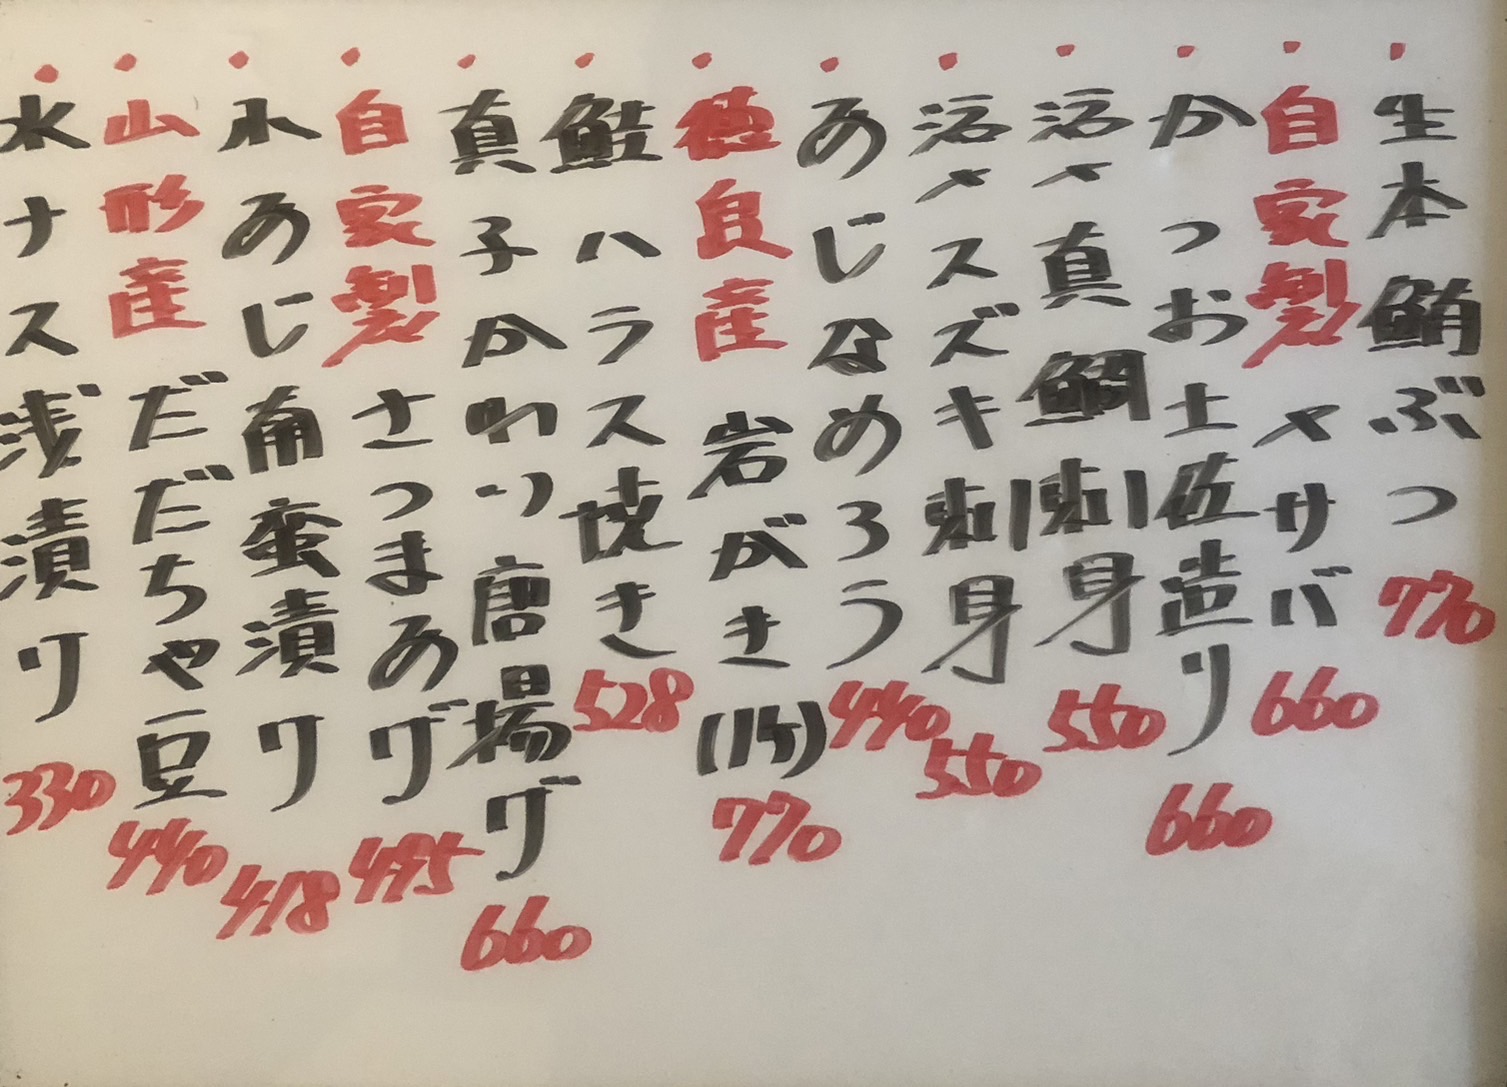 ・生本鮪ぶつ 770
・自家製〆サバ 660
・かつお土佐造り 660
・活〆真鯛刺身 550
・活〆スズキ刺身 550
・あじなめろう 440
・徳島産岩がき(1ケ) 770
・鮭ハラス焼き 528
・真子かれい唐揚げ 660
・自家製さつまあげ 495
・小あじ南蛮漬け 418
・山形産だだちゃ豆 440
・水ナス浅漬け 330